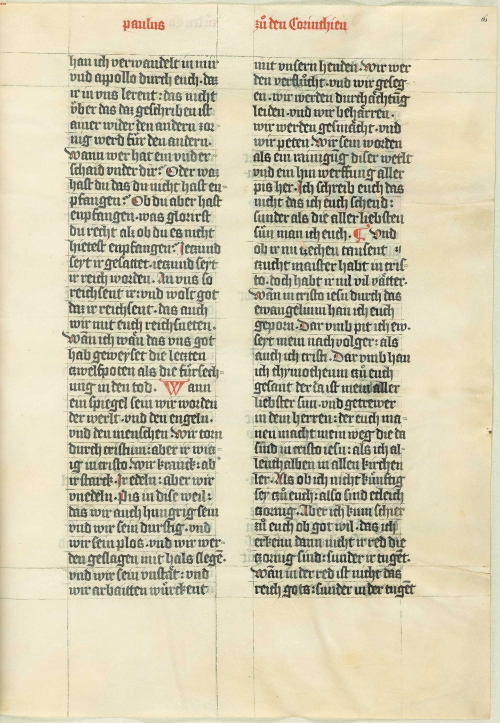 paulus
zů den Corinthien
han ich verwandelt in mir
vnd appollo durch euch · daz
ir in vns lerent : das nicht
über das daz geschriben ist
ainer wider den andern zor
nig werd für den andern ·
Wann wer hat ein vnder
schaid vnder dir Oder wa
hast du das du nicht hast en-
pfangen Ob du aber hast
enpfangen · was glorirst
du recht als ob du es nicht
hietest enpfangen Ieczund
seyt ir gesattet · ieczund seyt
ir reich worden · An vns so
reichsent ir · vnd wolt got
daz ir reichsent · das auch
wir mit euch reichsneten ·
Wañ ich wän das vns got
hab geweyset die leczten
zwelfpoten als die für sech-
ung in den tod · Wann
ein spiegel sein wir worden
der werlt · vnd den engeln ·
vnd den menschen · Wir torn
durch cristum : aber ir wicz-
ig in cristo · wir kranck : ab
ir starck · Ir edeln : aber wir
vnedeln · Pis in dise weil :
das wir auch hungrig sein
vnd wir sein durstig · vnd
wir sein plos · vnd wir wer-
den geslagen mit hals slegē ·
vnd wir sein vnstät : vnd
wir arbaitten würckent
mit vnsern henden · Wir wer
den verflůcht · vnd wir geseg-
en · wir werden durchächtūg
leiden · vnd wir beharren ·
wir werden gesmächt · vnd
wir peten · Wir sein worden
als ein rainigūg diser werlt
vnd ein hin werffung aller
pis her · Ich schreib euch das
nicht das ich euch schend :
sunder als die aller liebsten
sün man ich euch · Vnd
ob ir nu zechen tausent
zucht maister habt in cris-
to · doch habt ir nit vil vätter ·
Wañ in cristo iesu durch das
ewangelium han ich euch
geporn · Dar vmb pit ich ew ·
seyt mein nach volger : als
auch ich cristi · Dar vmb han
ich thymotheum zů euch
gesant der da ist mein aller
liebster sun · vnd getrewer
in dem herren : der euch ma-
nen macht mein weg die da
sind in cristo iesu : als ich al-
lenthalben in allen kirchen
ler · Als ob ich nicht künftig
sey zů euch : also sind etleich
zornig · Aber ich kum schier
zů euch ob got wil · das ich
erkenn dann nicht ir red die
zornig sind : sunder ir tugēt ·
Wañ in der red ist nicht das
reich gots : sunder in der tugēt